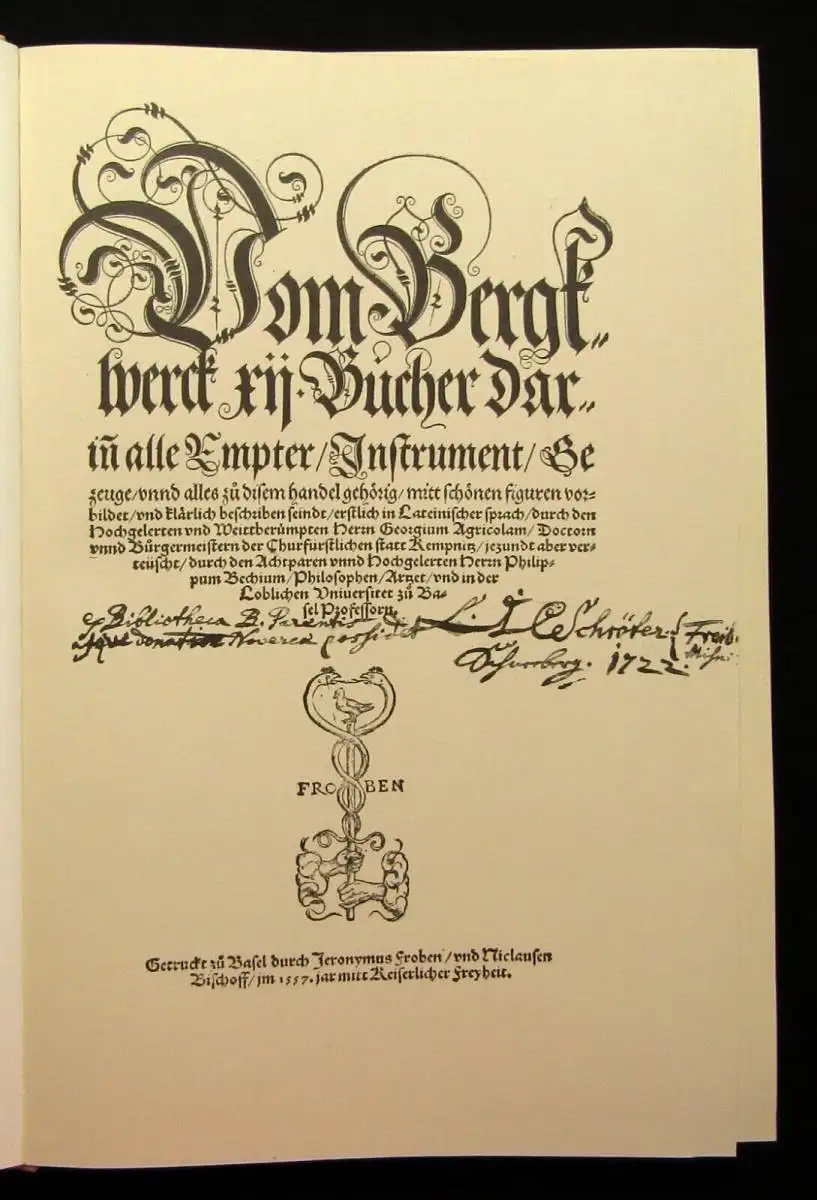 Vom Bergk⸗
werck xij. Bücher dar⸗
iñ alle Empter/Instrument/Ge
zeuge/vnnd alles zů disem handel gehörig/mitt schönen figuren vor⸗
bildet/vnd klärlich beschriben seindt/erstlich in Lateinischer sprach/durch den
Hochgelerten vnd Weittberümpten Herrn Georgium Agricolam/Doctorn
vnnd Bürgermeistern der Churfürstlichen statt Kempnitz/jezundt aber ver⸗
teüscht/durch den Achtparen vnnd Hochgelerten Herrn Philip⸗
pum Bechium/Philosophen/Artzet/vnd in der
Loblichen Vniuersitet zů Ba⸗
sel Professorn.
Bibliotheca B. Parentis
Noverca possidet
Schröter. Freib.
Schneeberg. 1722.
FRO BEN
Getruckt zů Basel durch Jeronymus Froben/vnd Niclausen
Bischoff/im 1557. jar mitt Keiserlicher Freyheit.